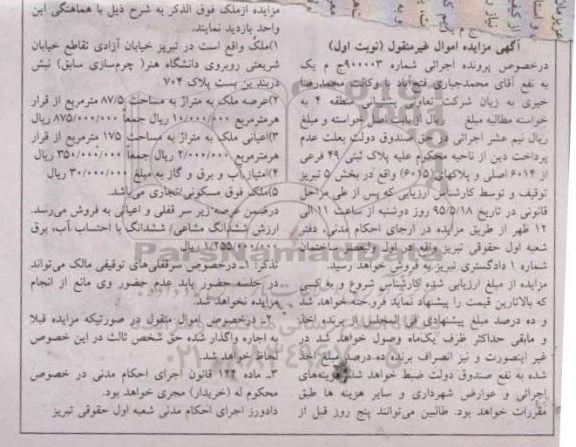 آگهی مزایده اموال غیرمنقول (نوبت اول)
درخصوص پرونده اجرائی شماره ۹۰۰۰۰۳ج م یک
به نفع آقای محمدجباری فتح‌آباد با وکالت محمدرضا
خیری به زیان شرکت تعاونی پشتیبانی منطقه ۴ به
خواسته مطالبه مبلغ ریال از بابت اصل خواسته و مبلغ
ریال نیم عشر اجرائی در حق صندوق دولت بعلت عدم
پرداخت دین از ناحیه محکوم علیه پلاک ثبتی ۴۹ فرعی
از ۶۰۱۴ اصلی و پلاکهای (۶۰۱۵) واقع در بخش ۵ تبریز
توقیف و توسط کارشناس ارزیابی که پس از طی مراحل
قانونی در تاریخ ۹۵/۵/۱۸ روز دوشنبه از ساعت ۱۱ الی
۱۲ ظهر از طریق مزایده در اجرای احکام مدنی، دفتر
شعبه اول حقوقی تبریز واقع در اول ولیعصر ساختمان
شماره ۱ دادگستری تبریز به فروش خواهد رسید.
مزایده از مبلغ ارزیابی شده کارشناس شروع و به کسی
که بالاترین قیمت را پیشنهاد نماید فروخته خواهد شد
و ده درصد مبلغ پیشنهادی فی المجلس از برنده اخذ
و مابقی حداکثر ظرف یک‌ماه وصول خواهد شد در
غیر اینصورت و نیز انصراف برنده ده درصد مبلغ اخذ
شده به نفع صندوق دولت ضبط خواهد شد. هزینه‌های
اجرائی و عوارض شهرداری و سایر هزینه ها طبق
مقررات خواهد بود. طالبین می‌توانند پنج روز قبل از
مزایده ازملک فوق الذکر به شرح ذیل با هماهنگی این
واحد بازدید نمایند.
۱)ملک واقع است در تبریز خیابان آزادی تقاطع خیابان
شریعتی روبروی دانشگاه هنر( چرم‌سازی سابق) نبش
دربند بن بست پلاک ۷۰۴
۲)عرصه ملک به متراژ به مساحت ۸۷/۵ مترمربع از قرار
هرمترمربع ۱۰/۰۰۰/۰۰۰ ریال جمعاً ۸۷۵/۰۰۰/۰۰۰ ریال
۳)اعیانی ملک به متراژ به مساحت ۱۷۵ مترمربع از قرار
هرمترمربع ۲/۰۰۰/۰۰۰ ریال جمعاً ۳۵۰/۰۰۰/۰۰۰ ریال
۴)امتیاز آب و برق و گاز به مبلغ ۳۰/۰۰۰/۰۰۰ ریال
۵)ملک فوق مسکونی/تجاری می‌باشد.
درضمن عرصه زیر سر قفلی و اعیانی به فروش می‌رسد.
ارزش ششدانگ مشاعی/ ششدانگ با احتساب آب، برق
۱/۲۵۵/۰۰۰/۰۰۰ ریال
تذکر: ۱ـ درخصوص سرقفلی‌های توقیفی مالک می‌تواند
در جلسه حضور یابد عدم حضور وی مانع از انجام
مزایده نخواهد شد.
۲ـ درخصوص اموال منقول در صورتیکه مزایده قبلا
به اجاره واگذار شده حق شخص ثالث در این خصوص
لحاظ خواهد شد.
۳ـ ماده ۱۴۴ قانون اجرای احکام مدنی در خصوص
محکوم له (خریدار) مجری خواهد بود.
دادورز اجرای احکام مدنی شعبه اول حقوقی تبریز
ParsNamadData